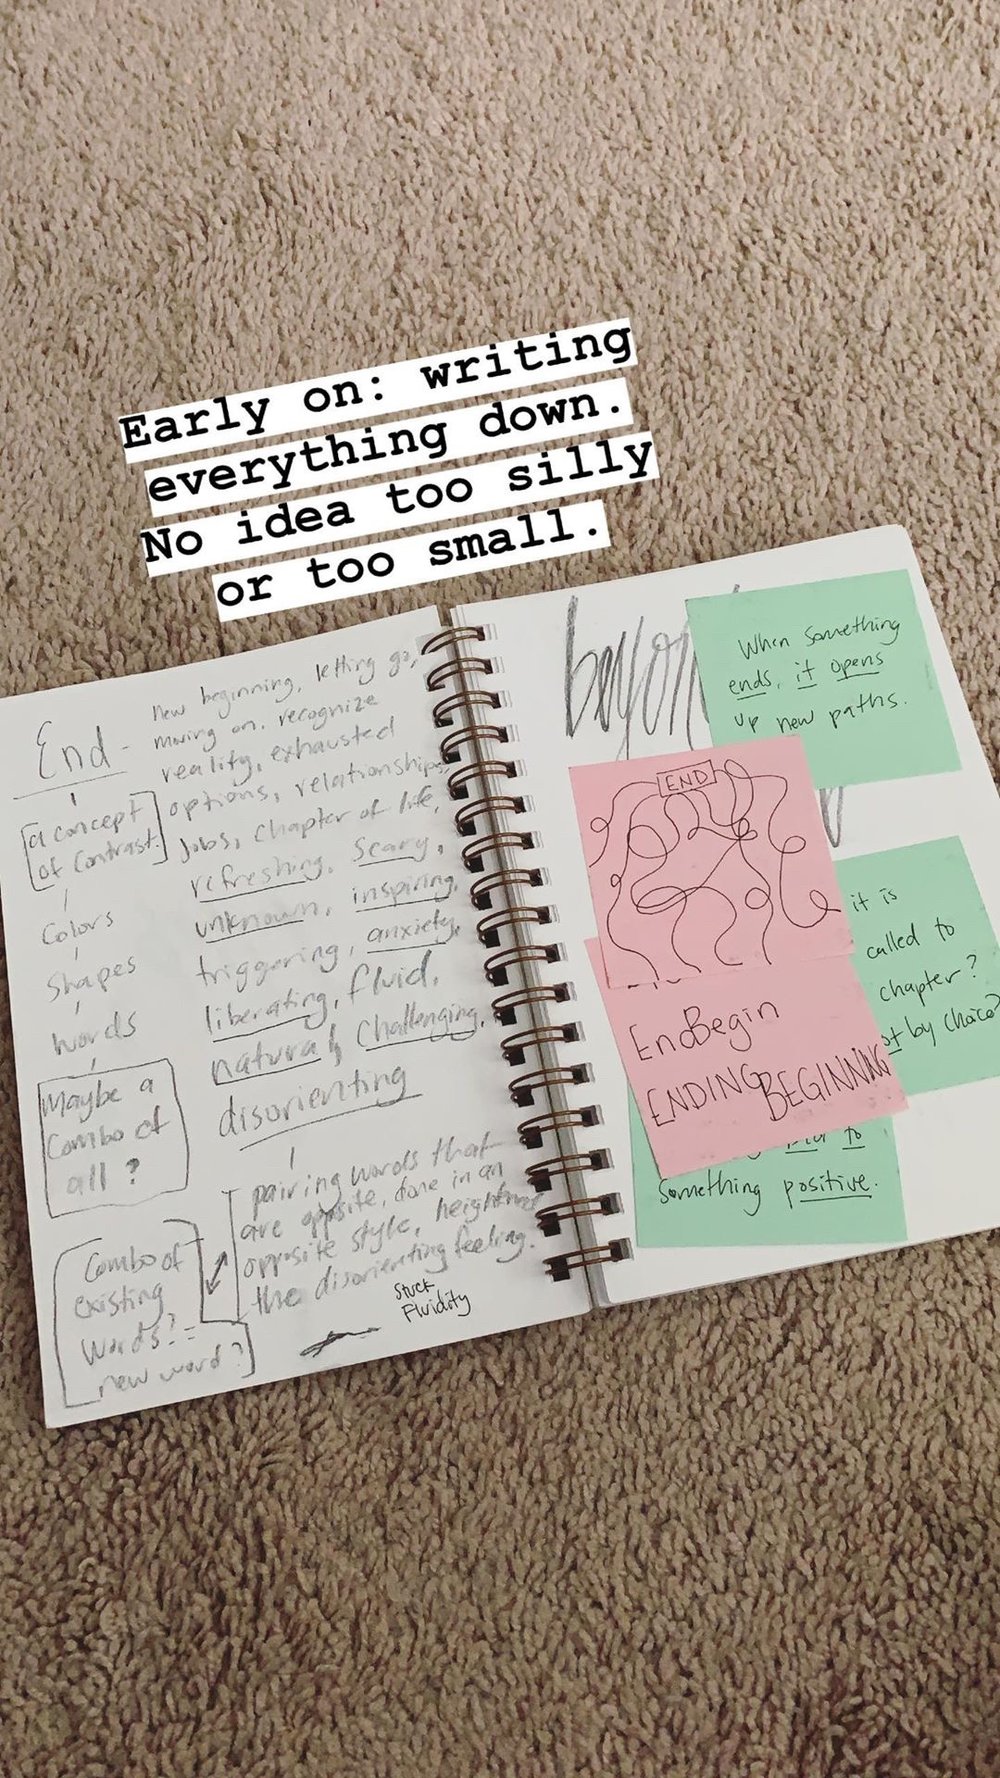 Early on: writing
everything down.
No idea too silly
or too small.
End -
new beginning, letting go,
moving on, recognize
reality, exhausted
options, relationships,
jobs, chapter of life,
refreshing, scary,
unknown, inspiring,
triggering, anxiety,
liberating, fluid,
natural, challenging,
disorienting
a concept
of contrast.
Colors
Shapes
words
Maybe a
Combo of
all?
Combo of
existing
words? =
new word?
pairing words that
are opposite, done in an
opposite style, heightens
the disorienting feeling.
Stuck
Fluidity
beyon
When something
ends, it opens
up new paths.
END
it is
called to
chapter?
by choice?
EndBegin
ENDING BEGINNING
to
something positive.